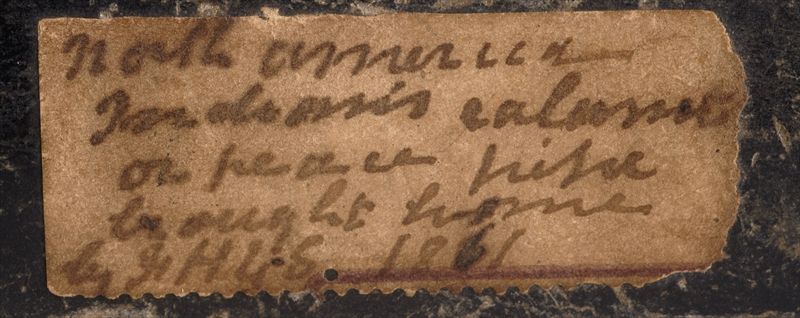 North america
Indians calumet
or peace pipe
brought home
by 1861